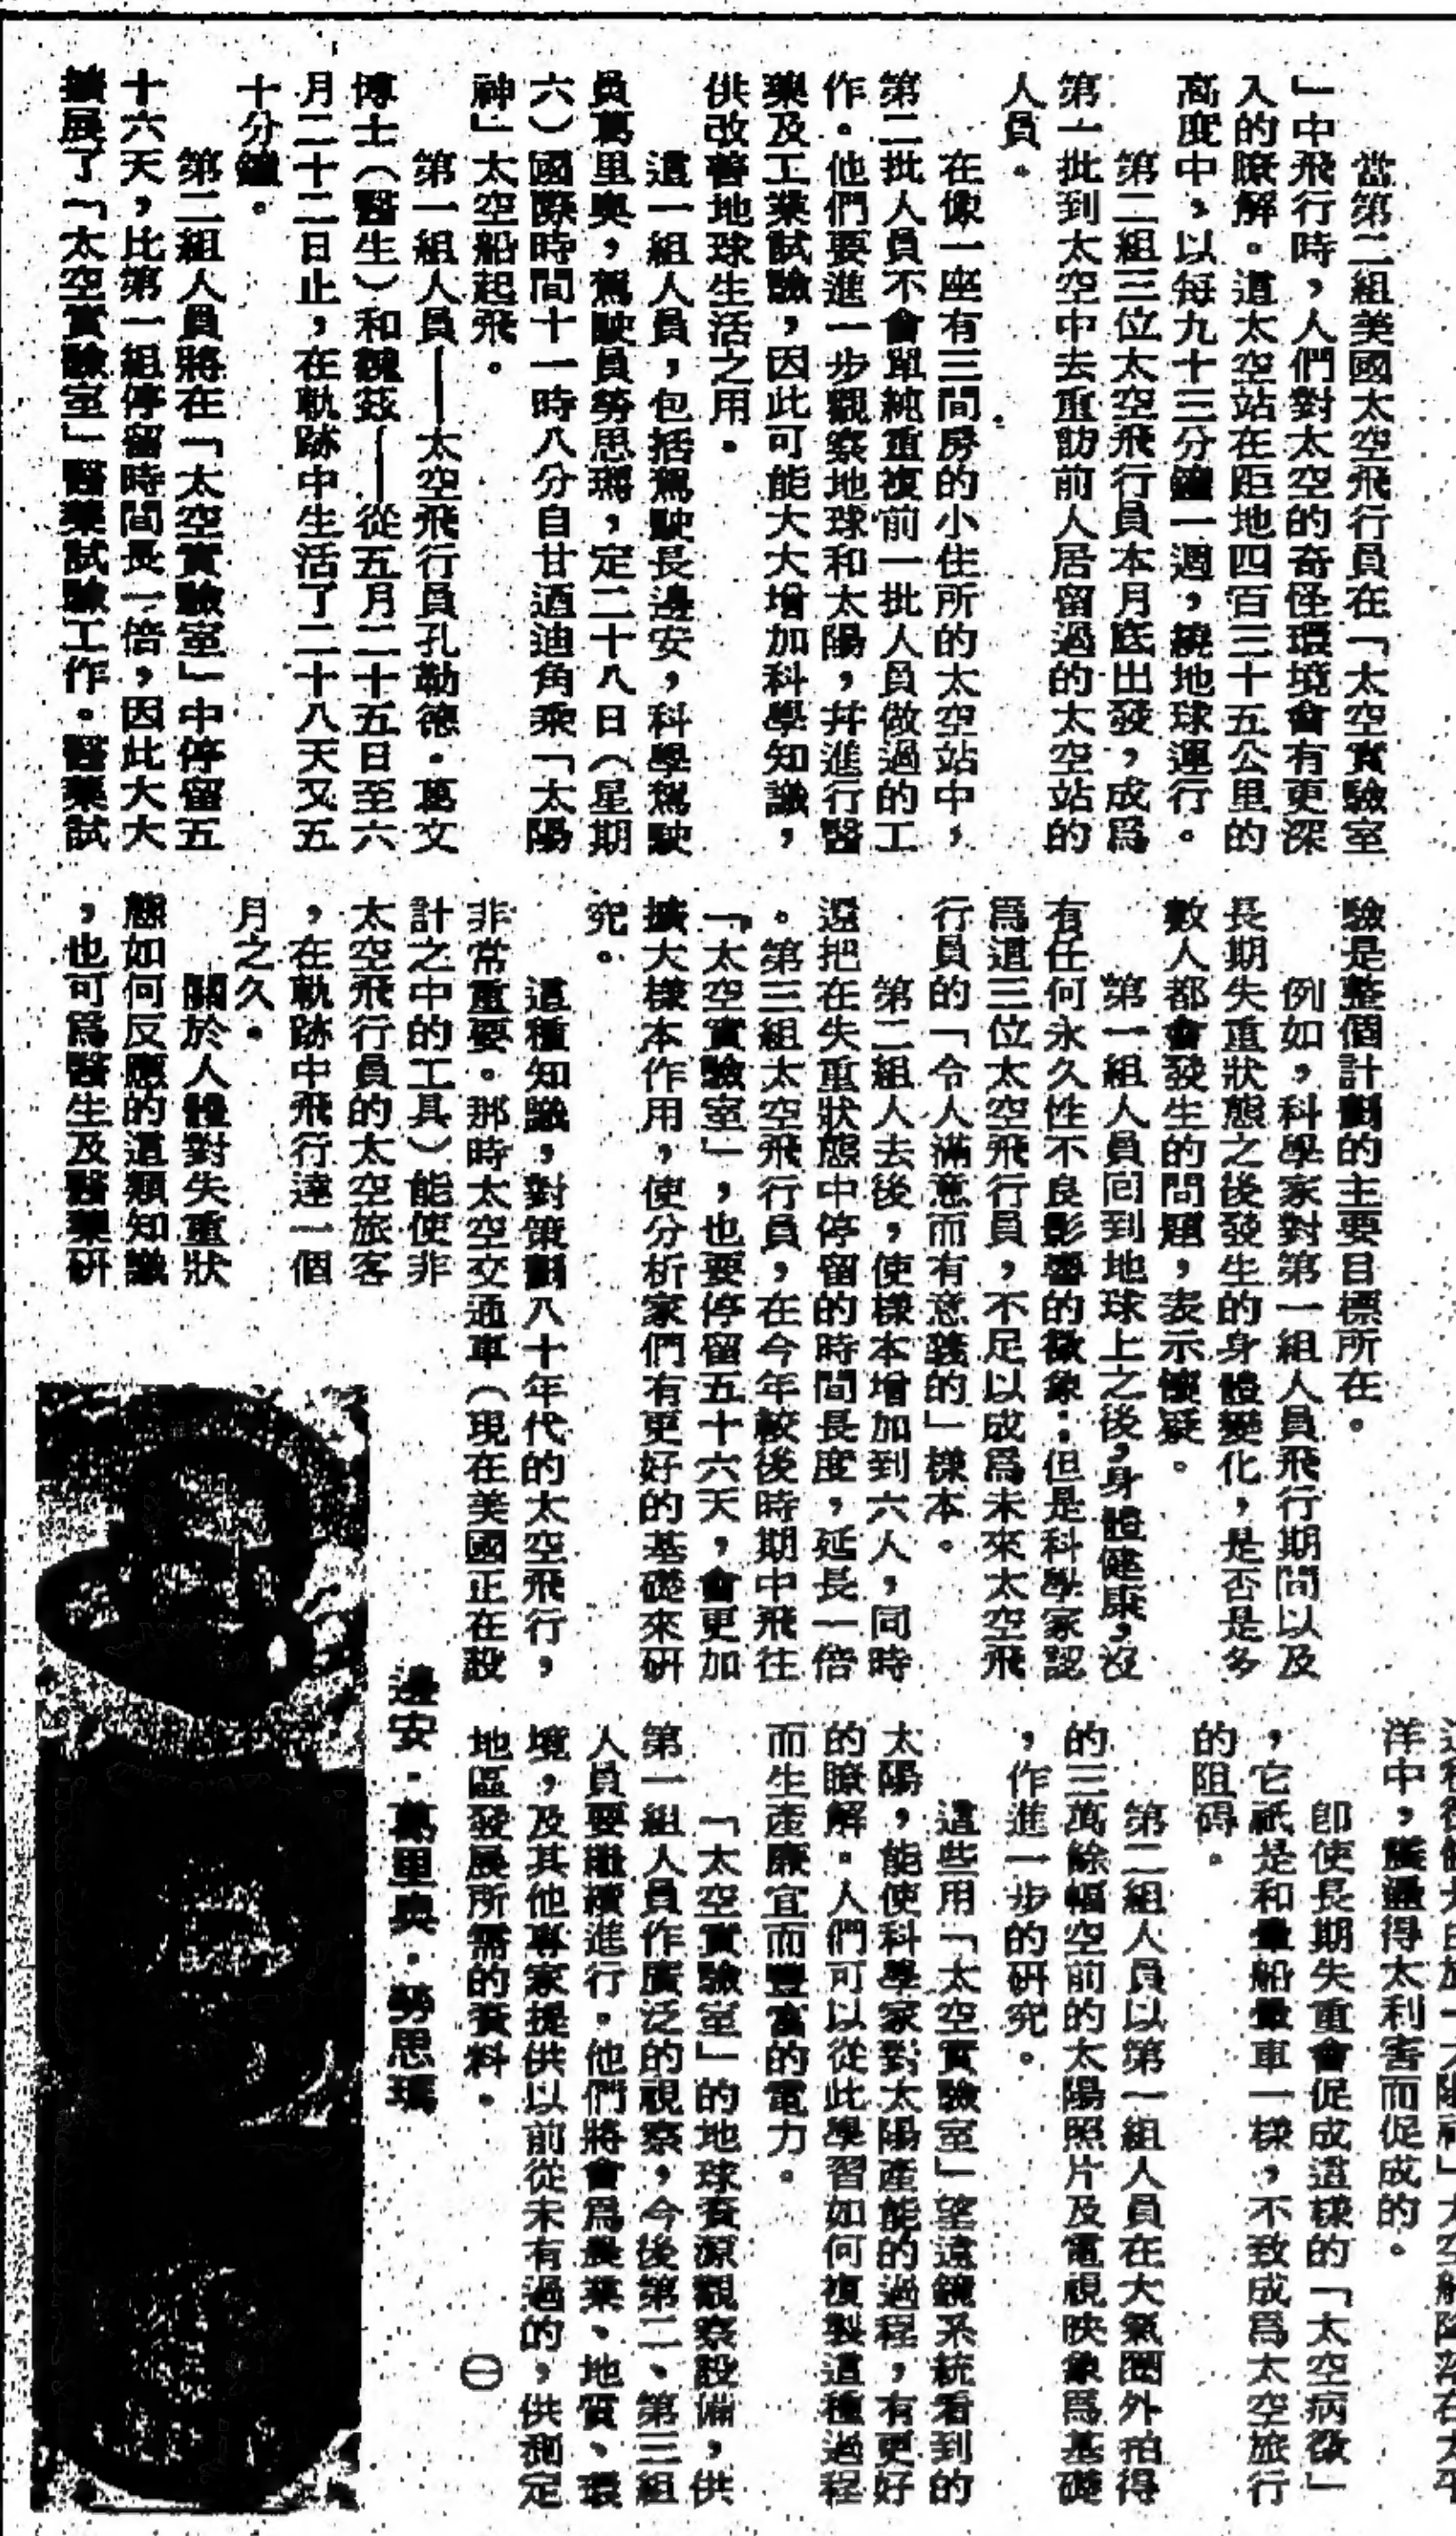 當第二組美國太空飛行員在「太空實驗室
」中飛行時,人們對太空的奇怪環境會有更深
入的瞭解。這太空站在距地四百三十五公里的
高度中,以每九十三分鐘一週,繞地球運行。
第二組三位太空飛行員本月底出發,成爲
第一批到太空中去重訪前人居留過的太空站的
人員。
在像一座有三間房的小住所的太空站中,
第二批人員不會單純重複前一批人員做過的工
作。他們要進一步觀察地球和太陽,幷進行醫
藥及工業試驗,因此可能大大增加科學知識,
供改善地球生活之用。
這一組人員,包括駕駛長邊安,科學駕駛
員萬里奥,駕駛員勞思瑪,定二十八日(星期
六)國際時間十一時八分自甘迺迪角乘「太陽
神」太空船起飛。
第一組人員——太空飛行員孔勒德・葛文
博士(醫生)和魏茲——從五月二十五日至六
月二十二日止,在軌跡中生活了二十八天又五
十分鐘。
第二組人員將在「太空實驗室」中停留五
十六天,比第一組停留時間長一倍,因此大大
擴展了「太空實驗室」醫藥試驗工作。醫藥試
驗是整個計劃的主要目標所在。
例如,科學家對第一組人員飛行期間以及
長期失重狀態之後發生的身體變化,是否是多
數人都會發生的問題,表示懷疑。
第一組人員回到地球上之後,身體健康,沒
有任何永久性不良影響的徵象;但是科學家認
爲這三位太空飛行員,不足以成爲未來太空飛
行員的「令人滿意而有意義的」樣本。
第二組人去後,使樣本增加到六人,同時
還把在失重狀態中停留的時間長度,延長一倍
。第三組太空飛行員,在今年較後時期中飛往
「太空實驗室」,也要停留五十六天,會更加
擴大樣本作用,使分析家們有更好的基礎來研
究。
這種知識,對策劃八十年代的太空飛行,
非常重要。那時太空交通車(現在美國正在設
計之中的工具)能使非
太空飛行員的太空旅客
,在軌跡中飛行達一個
月之久。
關於人體對失重狀
態如何反應的這類知識
,也可爲醫生及醫藥研
洋中,震盪得太利害而促成的。
卽使長期失重會促成這樣的「太空病徵」
,它祇是和暈船暈車一樣,不致成爲太空旅行
的阻碍。
第二組人員以第一組人員在大氣圈外拍得
的三萬餘幅空前的太陽照片及電視映象爲基礎
,作進一步的研究。
這些用「太空實驗室」望遠鏡系統看到的
太陽,能使科學家對太陽產能的過程,有更好
的瞭解。人們可以從此學習如何複製這種過程
而生產廉宜而豐富的電力。
「太空實驗室」的地球資源觀察設備,供
第一組人員作廣泛的視察,今後第二、第三組
人員要繼續進行。他們將會爲農業、地質、環
境,及其他專家提供以前從未有過的,供測定
地區發展所需的資料。 ㊀
邊安・萬里奥・勞思瑪